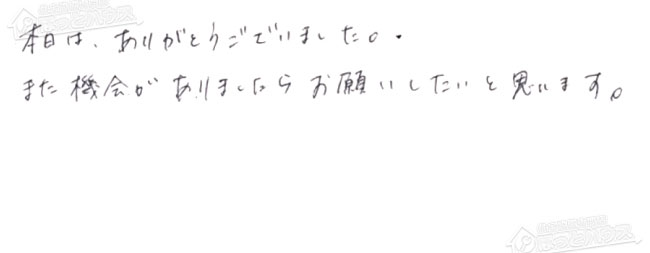 本日は、ありがとうございました。
また機会がありましたらお願いしたいと思います。